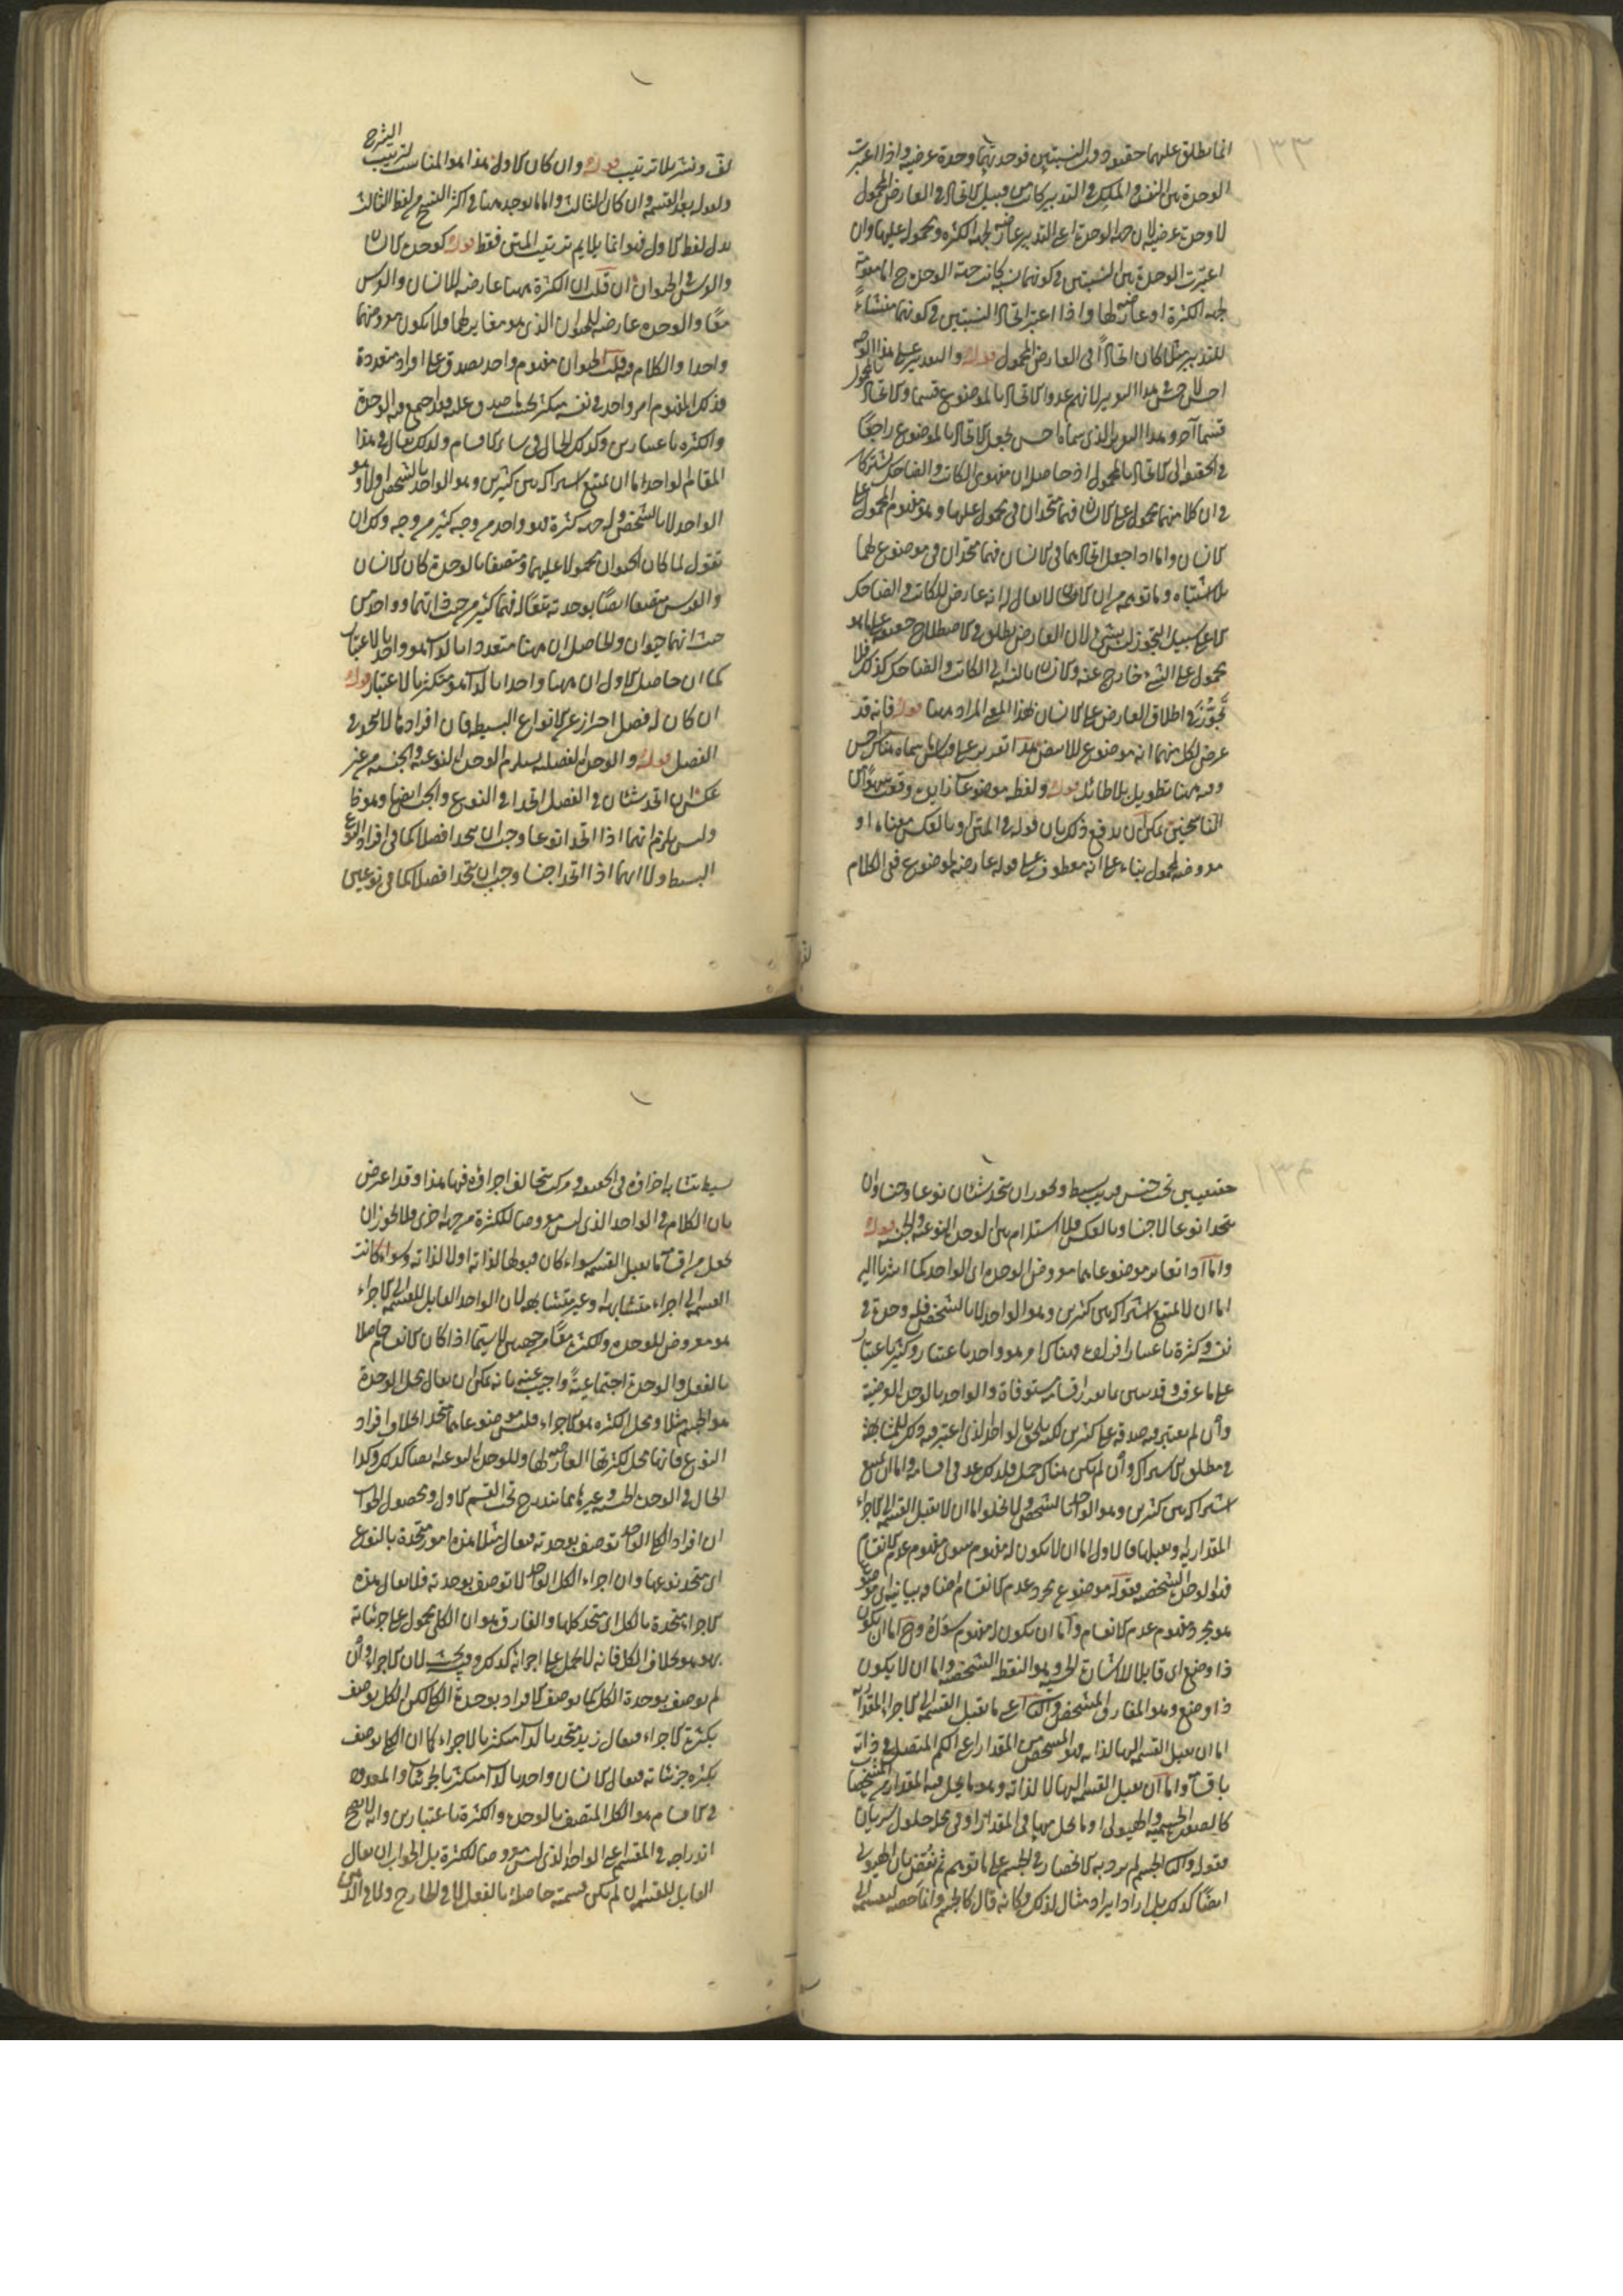 ١٣٣
انما يطلق عليهما حقيقة دون النسبتين فوحدتهما وحدة عرضية واذا اعتبرت
الوحدة بين النفس والملك في التدبير كانت من قبيل الاتحاد في العارض المحمول
لا وحدة عرضية لان جهة الوحدة اعني التدبير عارضة لجهة الكثرة ومحمول عليها وان
اعتبرت الوحدة بين النسبتين في كونهما نسبة كانت جهة الوحدة ح اما مقومة
لجهة الكثرة او عارضة لها واذا اعتبر اتحاد النسبتين في كونهما منشاء
للتدبير مثلا كان اتحادا في العارض المحمول قوله والتدبير على هذا الوجه
احسن لا حسن في هذا التوجيه لانهم عدوا الاتحاد بالموضوع قسما والاتحاد بالمحمول
قسما آخر وهذا التوجيه الذي سماه احسن يجعل الاتحاد بالموضوع راجعا
في الحقيقة الى الاتحاد بالمحمول اذ حاصله ان مفهومي الكاتب والضاحك اشتركا
في ان كلا منهما محمول على الانسان فهما متحدان في محمول عليهما وهو مفهوم المحمول على
الانسان واما اذا جعل اتحادهما في الانسان فهما متحدان في موضوع لهما
بلا اشتباه وما توهمه من ان الانسان لا يقال له انه عارض للكاتب والضاحك
الا على سبيل التجوز ليس بشيء لان العارض يطلق في الاصطلاح حقيقة على ما هو
محمول على الشيء خارج عنه والانسان بالنسبة الى الكاتب والضاحك كذلك فلا
تجوز في اطلاق العارض على الانسان بهذا المعنى المراد ههنا قوله فانه قد
عرض لكل منهما انه موضوع للابيض هذا تقدير على قياس ما سماه هناك احسن
وفيه ههنا تطويل بلا طائل قوله ولفظ موضوعات زايدة وقعت سهوا من
الناسخين يمكن ان يدفع ذلك بان قوله في المتن او بالعكس معناه او
معروضة لمحمول بناء على انه معطوف على قوله عارضة لموضوع ففي الكلام
لف ونشر بلا ترتيب قوله وان كان الاول هذا هو المناسب لترتيب الشرح
ولقوله بعد القسمة وان كان الثالث واما ما يوجد ههنا في اكثر النسخ من لفظ الثالث
بدل لفظ الاول فهو انما يلايم ترتيب المتن فقط قوله كوحدة الانسان
والفرس في الحيوان ان قلت ان الكثرة ههنا عارضة للانسان والفرس
معا والوحدة عارضة للحيوان الذي هو مغاير لهما ولا يكون معروضهما
واحدا والكلام فيه قلت الحيوان مفهوم واحد يصدق على افراد متعددة
فذلك المفهوم امر واحد في نفسه متكثر بحسب ما صدق عليه فقد اجتمع فيه الوحدة
والكثرة باعتبارين وكذلك الحال في سائر الاقسام ولذلك يقال في هذا
المقام الواحد اما ان يمتنع اشتراكه بين كثيرين وهو الواحد بالشخص اولا وهو
الواحد لا بالشخص وله جهة كثرة فهو واحد من وجه كثير من وجه ولك ان
تقول لما كان الحيوان محمولا عليهما ومتصفا بالوحدة كان الانسان
والفرس متصفا ايضا بوحدته تبعا له فهما كثير من حيث ذاتهما وواحد من
حيث انهما حيوان والحاصل ان ههنا متعددا بالذات هو واحد بالاعتبار
كما ان حاصل الاول ان ههنا واحدا بالذات هو متكثر بالاعتبار قوله
ان كان له فصل احتراز عن الانواع البسيطة فان افرادها لا يتحد في
الفصل قوله والوحدة الفصلية يستلزم الوحدة النوعية والجنسية من غير
عكس ان اتحد شيئان في الفصل اتحدا في النوع والجنس ايضا وهو ظاهر
وليس يلزم انهما اذا اتحدا نوعا وجب ان يتحدا فصلا كما في افراد النوع
البسيط ولا انهما اذا اتحدا جنسا وجب ان يتحدا فصلا كما في نوعين
١٣٤
حقيقيين تحت جنس قريب بسيط ويجوز ان يتحد شيئان نوعا وجنسا وان
يتحدا نوعا لا جنسا وبالعكس فلا استلزام بين الوحدة النوعية والجنسية قوله
واما اذا تغاير موضوعاهما معروض الوحدة اي الواحد كما اشرنا اليه
اما ان لا يمتنع اشتراكه بين كثيرين وهو الواحد لا بالشخص فله وحدة في
نفسه وكثرة باعتبار افراده فهناك امر هو واحد باعتبار وكثير باعتبار
على ما عرفت وقد سبق بيانه واقسامه مستوفاة والواحد بالوحدة العرضية
وان لم يعتبر فيه صدقه على كثيرين لكنه يلحق بالواحد الذي اعتبر فيه ذلك للمشابهة
في مطلق الاشتراك وان لم يكن هناك حمل فلذلك عد في اقسامه واما ان يمتنع
اشتراكه بين كثيرين وهو الواحد بالشخص ولا يخلو اما ان لا يقبل القسمة الى الاجزاء
المقدارية او يقبلها فالاول اما ان لا يكون له مفهوم سوى مفهوم عدم الانقسام
فهو الوحدة الشخصية فقوله موضوع مجرد عدم الانقسام اضافة بيانية اي موضوع
هو مجرد مفهوم عدم الانقسام واما ان يكون له مفهوم سواه وح اما ان يكون
ذا وضع اي قابلا للاشارة الحسية وهو النقطة الشخصية واما ان لا يكون
ذا وضع وهو المفارق المشخص والثاني اعني ما يقبل القسمة الى الاجزاء المقدارية
اما ان يقبل القسمة اليها لذاته وهو المشخص من المقدار اعني الكم المتصل في ذاته
باقسامه واما ان يقبل القسمة اليها لا لذاته وهو ما يحل فيه المقدار من المشخصات
كالصورة الجسمية والهيولى او ما يحل منها في المقدار او في محله حلول سريان
فقوله والثاني الجسم لم يرد به الانحصار في الجسم على ما توهم ثم نقض بان الهيولى
ايضا كذلك بل اراد ايراد مثال لذلك فكانه قال كالجسم وانما خصه ليقسمه الى
بسيط يتشابه اجزاؤه في الحقيقة ومركب يتخالف اجزاؤه فيها هذا وقد اعترض
بان الكلام في الواحد الذي ليس معروضا للكثرة من جهة اخرى فلا يجوز ان
يجعل من اقسامه ما يقبل القسمة سواء كان قبولها لذاته او لا لذاته وسواء كانت
القسمة الى اجزاء متشابهة او غير متشابهة لان الواحد القابل للقسمة الى الاجزاء
هو معروض للوحدة والكثرة معا من جهتين لا سيما اذا كان الانقسام حاصلا
بالفعل والوحدة اجتماعية واجيب عنه بانه يمكن ان يقال محل الوحدة
هو الجسم مثلا ومحل الكثرة هو الاجزاء فليس موضوعاهما متحدا بخلاف افراد
النوع فانها محل لكثرتها العارضة لها وللوحدة النوعية ايضا كذلك وكذا
الحال في الوحدة الجنسية وغيرها مما يندرج تحت القسم الاول ومحصول الجواب
ان افراد الكلي الواحد توصف بوحدته فيقال مثلا هذه امور متحدة بالنوع
اي متحد نوعها وان اجزاء الكل الواحد لا توصف بوحدته فلا يقال هذه
الاجزاء متحدة بالكل اي متحد كلها والفارق هو ان الكلي محمول على جزئياته
بهو هو بخلاف الكل فانه لا يحمل على اجزائه كذلك وفيه بحث لان الاجزاء وان
لم يوصف بوحدة الكل كما يوصف الافراد بوحدة الكلي لكن الكل يوصف
بكثرة الاجزاء فيقال زيد متحد بالذات متكثر بالاجزاء كما ان الكلي يوصف
بكثرة جزئياته فيقال الانسان واحد بالذات متكثر بالجزئيات والمعروض
في الاقسام هو الكل المتصف بالوحدة والكثرة باعتبارين وانه لا يصح
اندراجه في المقسم اعني الواحد الذي ليس معروضا للكثرة بل الجواب ان يقال
القابل للقسمة ان لم يكن قسمته حاصلة بالفعل لا في الخارج ولا في الذهن